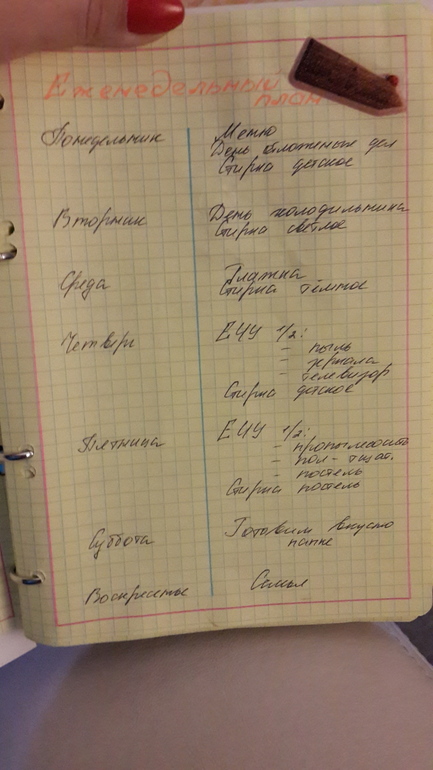 Еженедельный
план
Понедельник
Меню
День отложеных дел
Стирка детское
Вторник
День холодильника
Стирка светлое
Среда
Глажка
Стирка тёмное
Четверг
ЕЧУ 1/2:
- пыль
- зеркала
- телевизор
Стирка детское
Пятница
ЕЧУ 1/2:
- пропылесосить
- пол - тщат.
- постель
Стирка постель
Суббота
Готовим вкусно
папке
Воскресенье
Семья